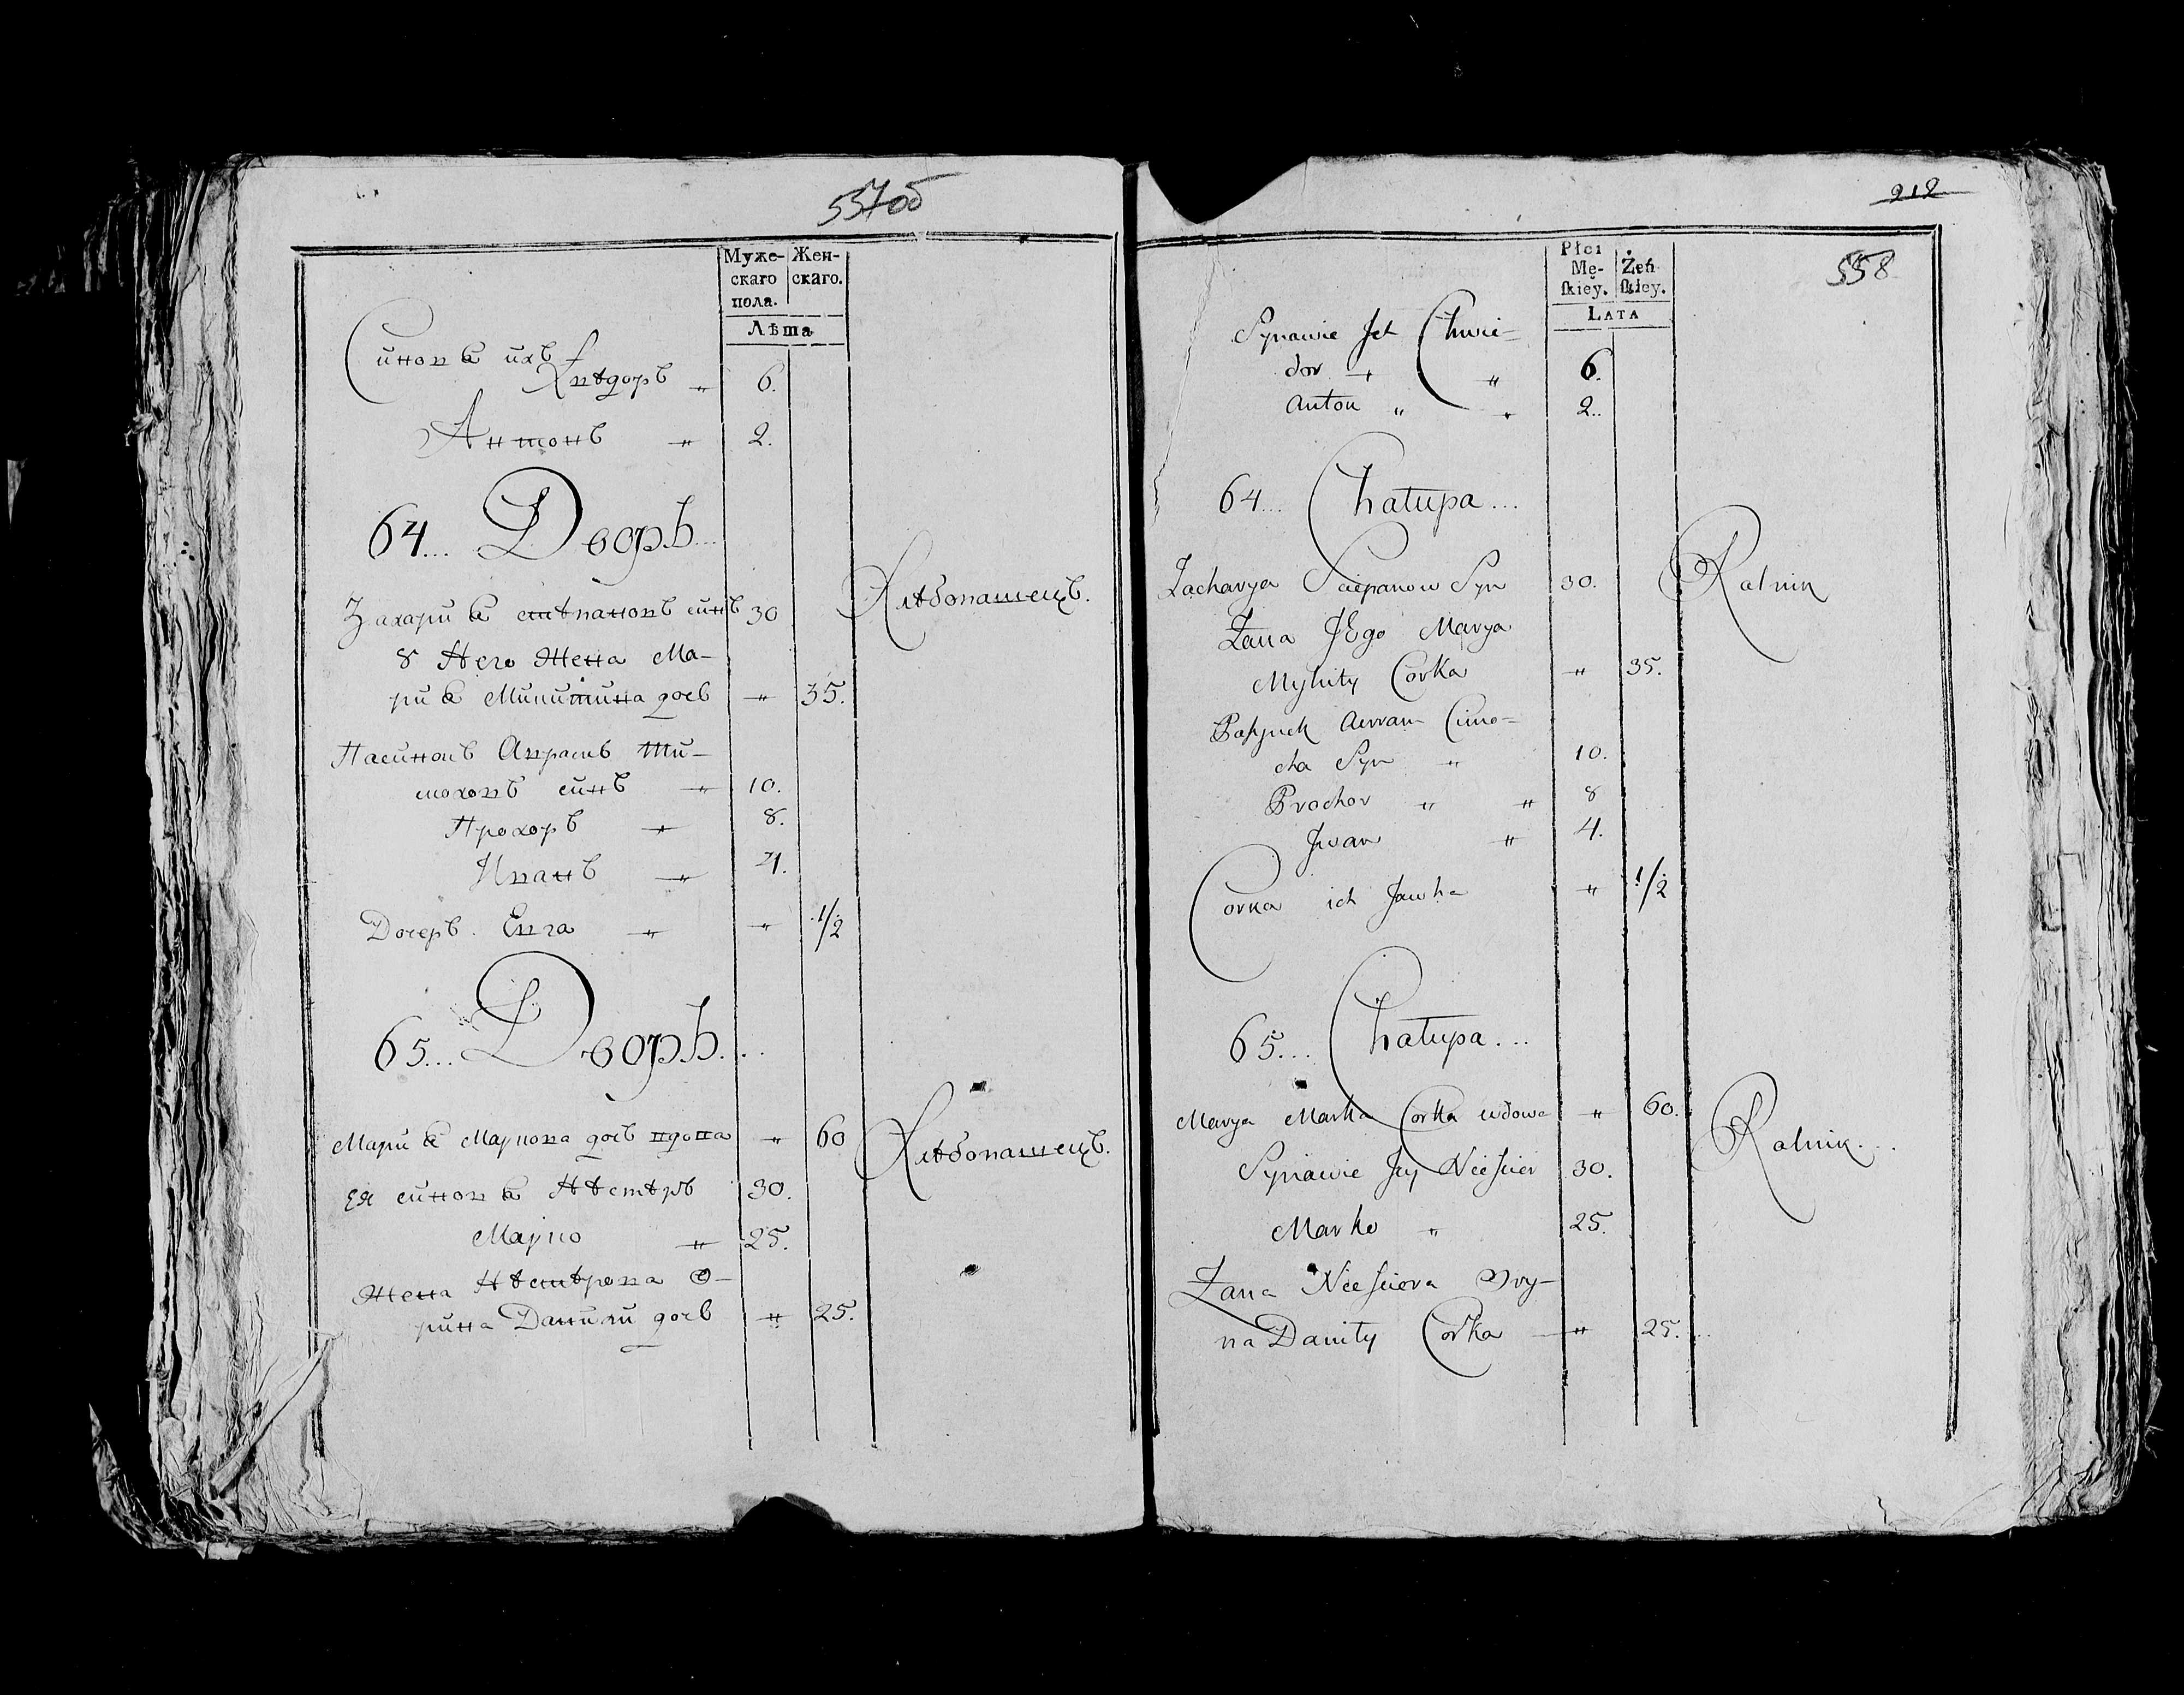 557об
Муже-
скаго
пола.
Жен-
скаго.
Лѣта
Синовѣ ихъ
Хвѣдоръ „ 6.
Антонъ „ 2.
64... Дворъ...
Захарий Стѣпановъ синъ 30 Хлѣбопашецъ.
У Него Жена Ма-
рия Микитина дочь „ 35.
Пасинокъ Аврамъ Ти-
моховъ синъ „ 10.
Прохоръ „ 8.
Иванъ „ 4.
Дочеръ Евга „ „ 1/2
65... Дворъ...
Мария Маркова дочь вдова „ 60 Хлѣбопашецъ.
Ея синовѣ Нѣстѣръ 30.
Марко „ 25.
Жена Нѣстѣрова О-
рина Данили дочь „ 25.
212
558
Płci
Mę-
skiey.
Żeń
skiey.
LATA
Synawie Jch Chwie-
dor „ 6.
Anton „ „ 2..
64... Chałupa...
Zacharya Sciepanow Syn 30. Ralnik
Żana JEgo Marya
Mykity Corka „ 35.
Pasynek Awram Cimo-
cha Syn „ 10.
Prochor „ „ 8
Jwan „ 4.
Corka ich Jawha „ 1/2
65... Chałupa...
Marya Marka Corka wdowa „ 60. Ralnik...
Synawie Jey Niescier 30.
Marko „ 25.
Żana Niesciera Ory-
na Daniły Corka „ 25...